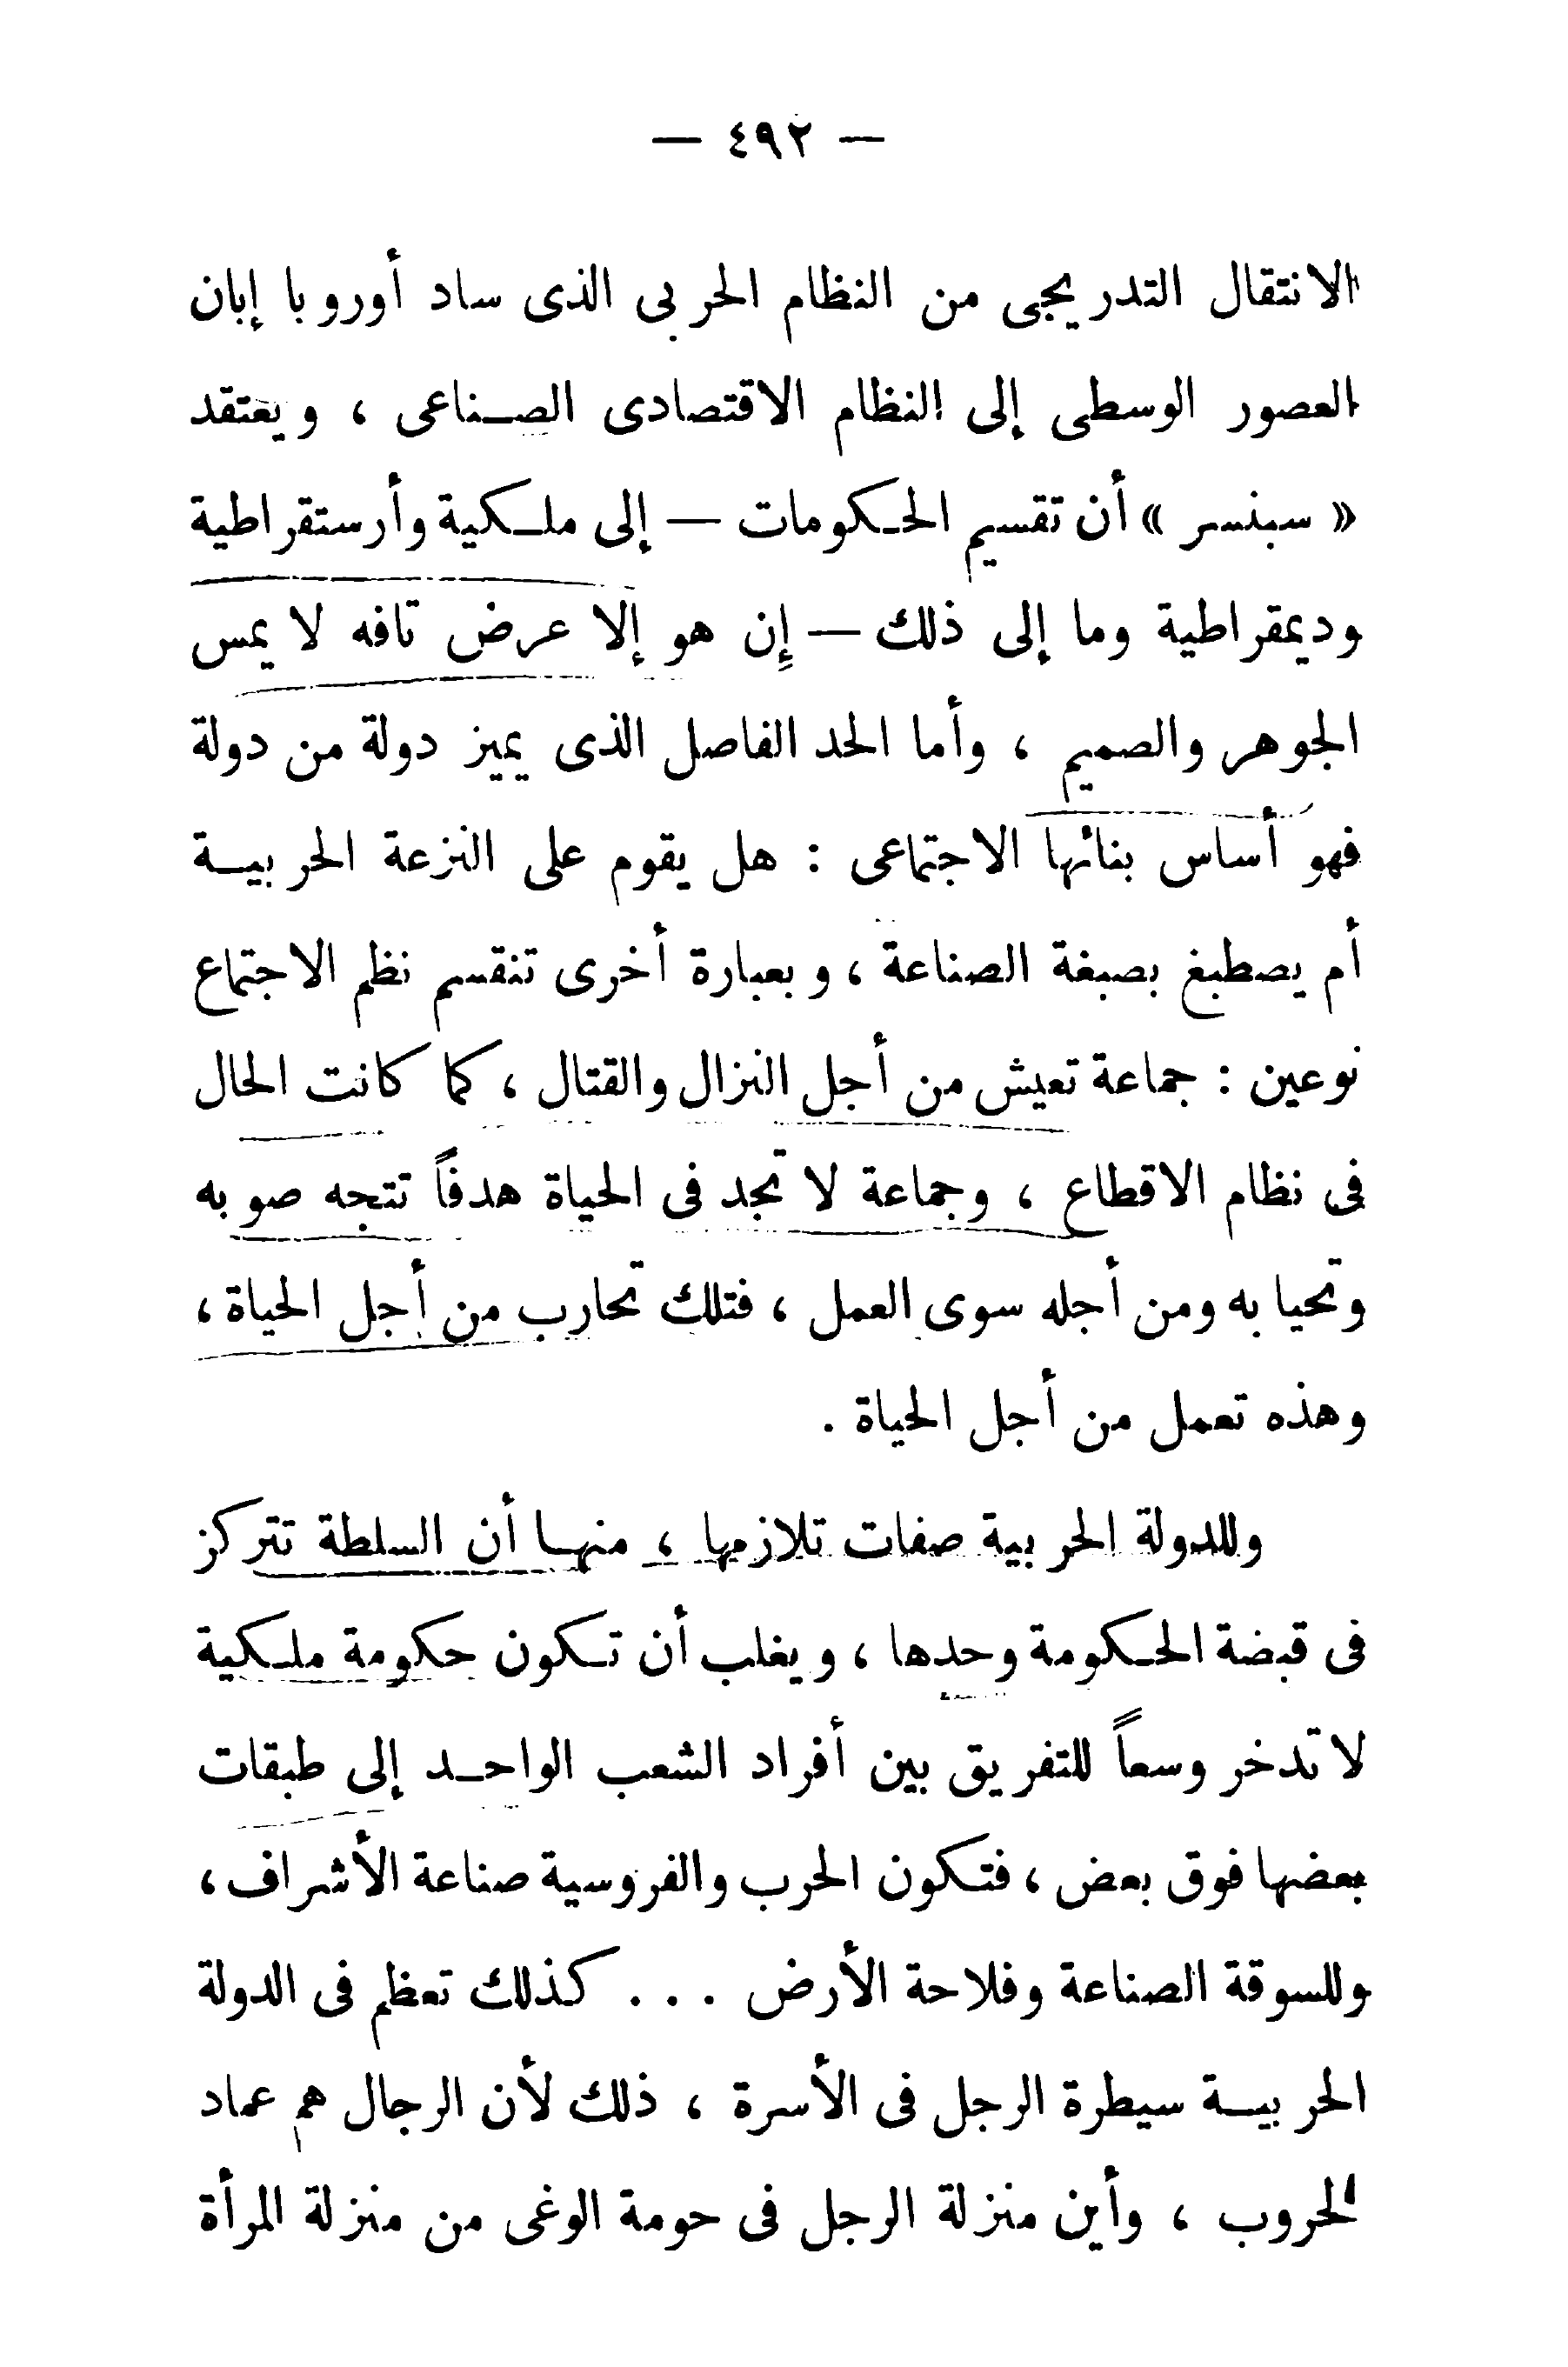 — ٤٩٢ —
الانتقال التدريجى من النظام الحربى الذى ساد أوروبا إبان
العصور الوسطى إلى النظام الاقتصادى الصناعى ، ويعتقد
« سبنسر » أن تقسيم الحكومات — إلى ملكية وأرستقراطية
وديمقراطية وما إلى ذلك — إن هو إلا عرض تافه لا يمس
الجوهر والصميم ، وأما الحد الفاصل الذى يميز دولة من دولة
فهو أساس بنائها الاجتماعى : هل يقوم على النزعة الحربية
أم يصطبغ بصبغة الصناعة ، وبعبارة أخرى تنقسم نظم الاجتماع
نوعين : جماعة تعيش من أجل النزال والقتال ، كما كانت الحال
فى نظام الاقطاع ، وجماعة لا تجد فى الحياة هدفاً تتجه صوبه
وتحيا به ومن أجله سوى العمل ، فتلك تحارب من أجل الحياة ،
وهذه تعمل من أجل الحياة .
وللدولة الحربية صفات تلازمها ، منها أن السلطة تتركز
فى قبضة الحكومة وحدها ، ويغلب أن تكون حكومة ملكية
لا تدخر وسعاً للتفريق بين أفراد الشعب الواحد إلى طبقات
بعضها فوق بعض ، فتكون الحرب والفروسية صناعة الأشراف ،
وللسوقة الصناعة وفلاحة الأرض ... كذلك تعظم فى الدولة
الحربية سيطرة الرجل فى الأسرة ، ذلك لأن الرجال هم عماد
الحروب ، وأين منزلة الرجل فى حومة الوغى من منزلة المرأة